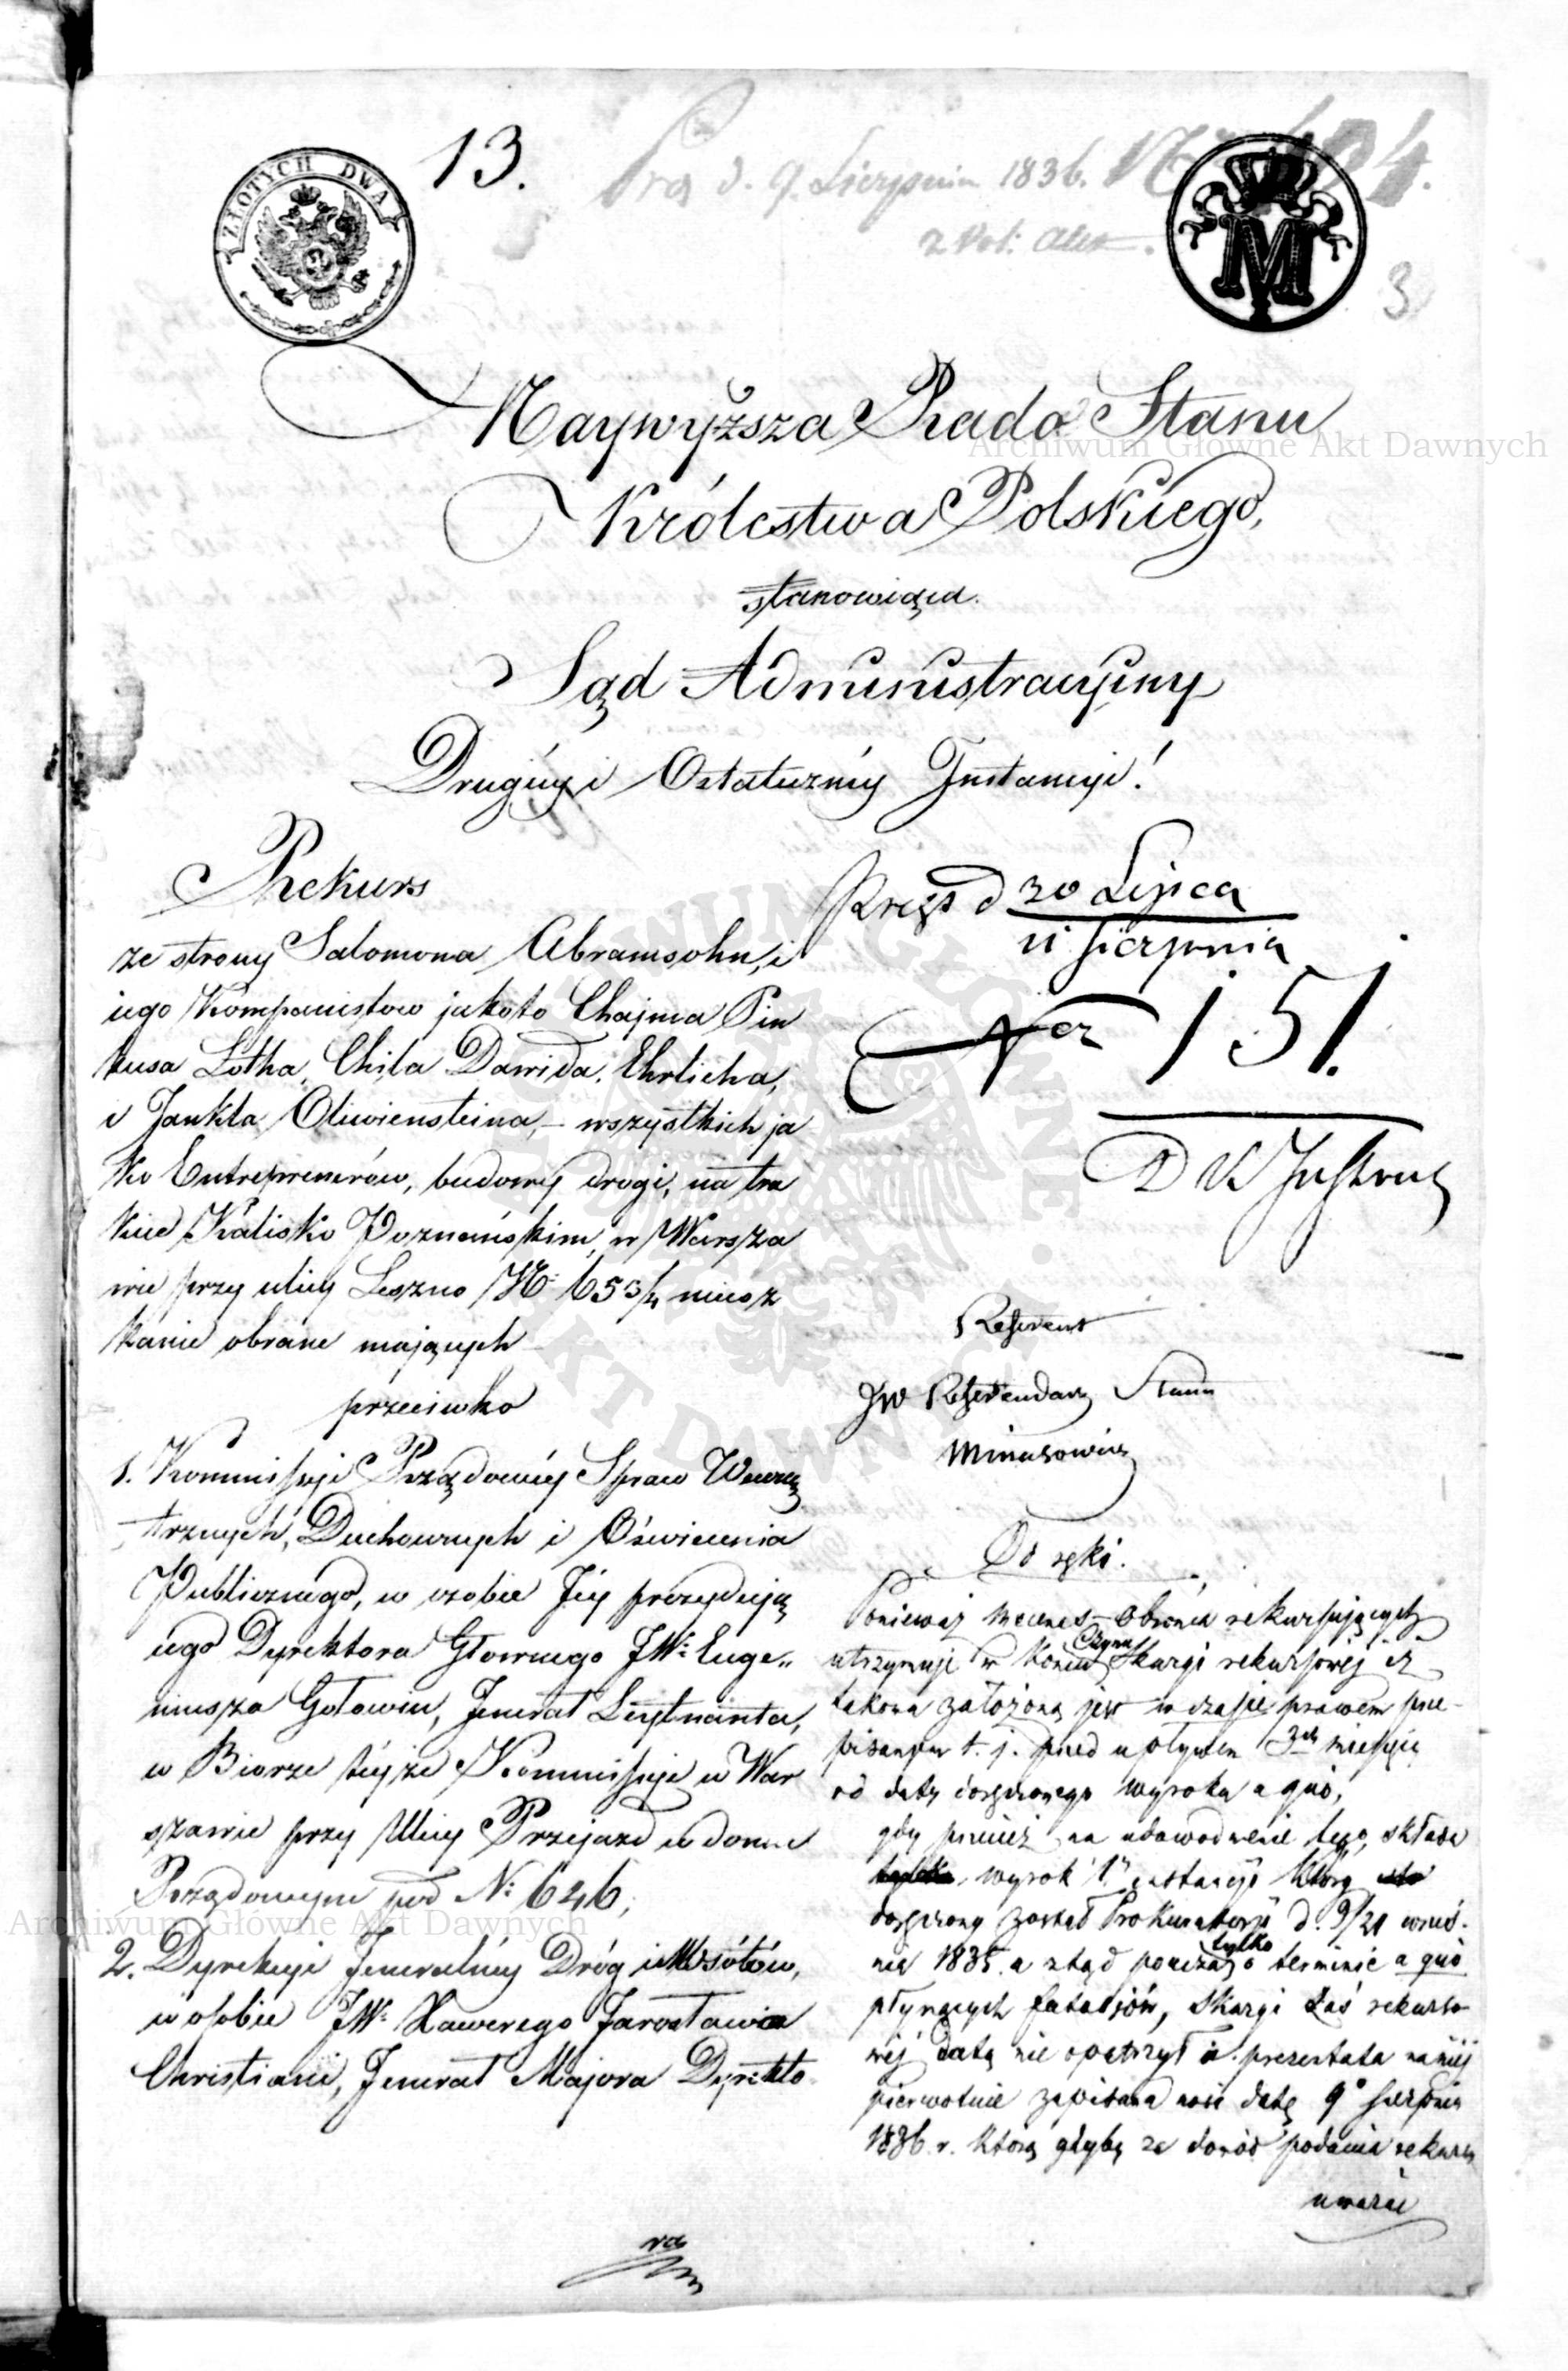 ZŁOTYCH DWA
13.
d. 9. Sierpnia 1836.
M
3
Naywyższa Rada Stanu
Królestwa Polskiego,
stanowiąca
Sąd Administracyiny
Drugiéy i Ostatecznéy Instancyi!
Rekurs
ze strony Salomona Abramsohn, i
iego Kompanistow jakoto Chajma Pin
kusa Lotha, Chila Dawida Ehrlicha,
i Jankla Oliwiensteina, – wszystkich ja
ko Entreprenerów, budowy drogi, na tra
kcie Kalisko Poznańskim, w Warsza
wie przy ulicy Leszno No 653/4 miesz
kanie obrane maiących
przeciwko
1. Kommissyi Rządowéy Spraw Wewnę
trznych, Duchownych i Oświecenia
Publicznego, w osobie Jéy prezyduią
cego Dyrektora Głownego JW. Euge„
niusza Gołowin, Jenerał Leytnanta,
w Biorze téyże Kommissyi w War
szawie przy Ulicy Przejazd w domu
Rządowym pod No 646;
2. Dyrekcyi Jeneralnéy Dróg i Mostów,
w osobie JW. Xawerego Jarosława
Christiani, Jenerał Majora Dyrekto
ra
d 30 Lipca
11 Sierpnia
Ner 151.
Referent
JW Referendarz Stanu
Minasowicz
Do ręki.
Ponieważ Mecenas – Obrońca rekursujących
utrzymuje w końcu Skargi rekursowéj iż
takowa założoną jest w czasie prawem prze-
pisanym t. j. przed upływem 3ch miesięcy
od daty doręczonego wyroku a quo,
gdy przecież na udowodnienie tego, składa
wyrok 1éj instancyi który
doręczony został Prokuratorii d. 9/21 wrześ-
nia 1835. a ztąd tylko terminie a quo
płynących fataljów, Skargi zaś rekurso-
wéj datą nie opatrzył a prezentata na niéj
pierwotnie zapisana nosi datę 9o sierpnia
1836. r. którą gdyby za dowód podania rekursu
uważać
Archiwum Główne Akt Dawnych
Archiwum Główne Akt Dawnych
ARCHIWUM GŁÓWNE AKT DAWNYCH